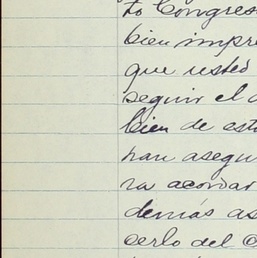 to Congres
bien impre
que usted
seguir el
bien de est
han asegu
ra acordar
demás as
cerlo del C